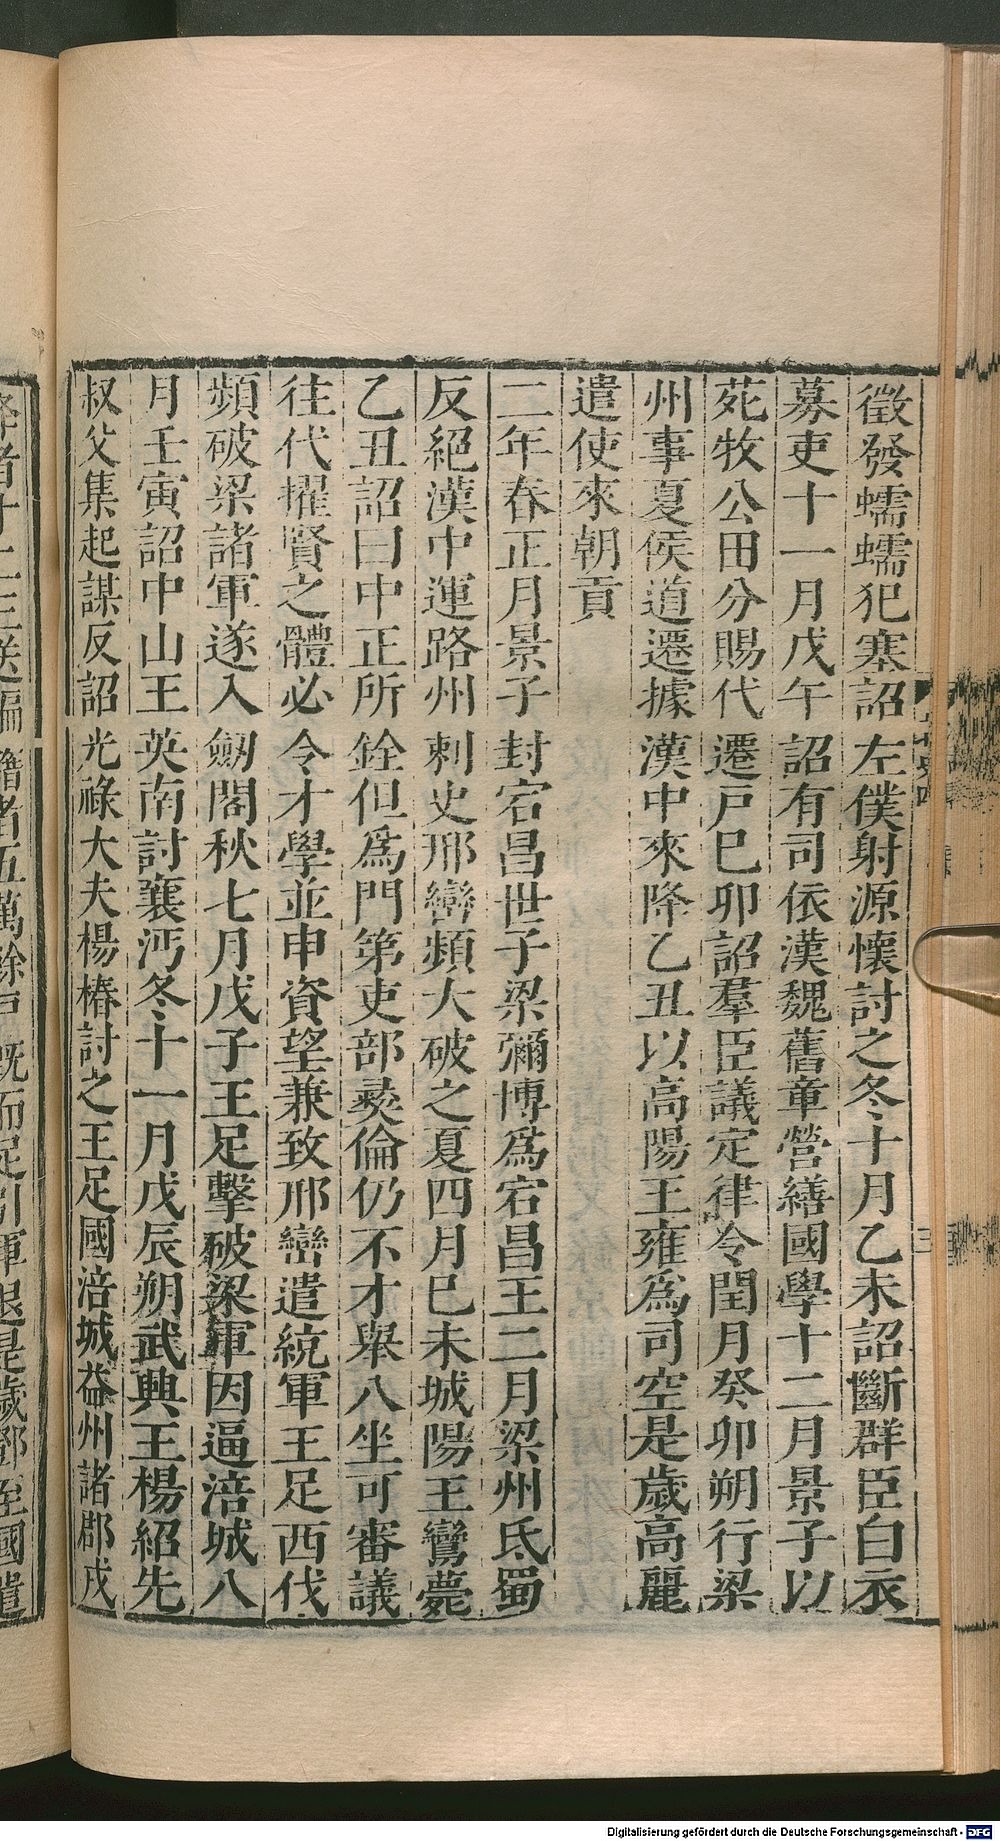 徵發蠕蠕犯塞詔左僕射源懷討之冬十月乙未詔斷群臣白衣
募吏十一月戊午詔有司依漢魏舊章營繕國學十二月景子以
苑牧公田分賜代遷戸巳卯詔羣臣議定律令閏月癸卯朔行梁
州事夏侯道遷據漢中來降乙丑以高陽王雍爲司空是歲高麗
遣使來朝貢
二年春正月景子封宕昌世子梁彌博爲宕昌王二月梁州氐蜀
反絕漢中運路州刺史邢巒頻大破之夏四月巳未城陽王鸞薨
乙丑詔曰中正所銓但爲門第吏部彛倫仍不才舉八坐可審議
往代擢賢之體必令才學並申資望兼致邢巒遣統軍王足西伐
頻破梁諸軍遂入劒閣秋七月戊子王足擊破梁軍因逼涪城八
月壬寅詔中山王英南討襄沔冬十一月戊辰朔武興王楊紹先
叔父集起謀反詔光祿大夫楊椿討之王足圍涪城益州諸郡戍
降者十二三送編籍者五萬餘戸既而足引軍退是歲鄧至國遣
Digitalisierung gefördert durch die Deutsche Forschungsgemeinschaft - DFG